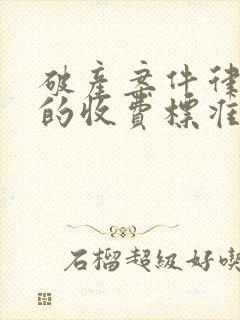 破產案件律
的收費標准
石榴超級好喫